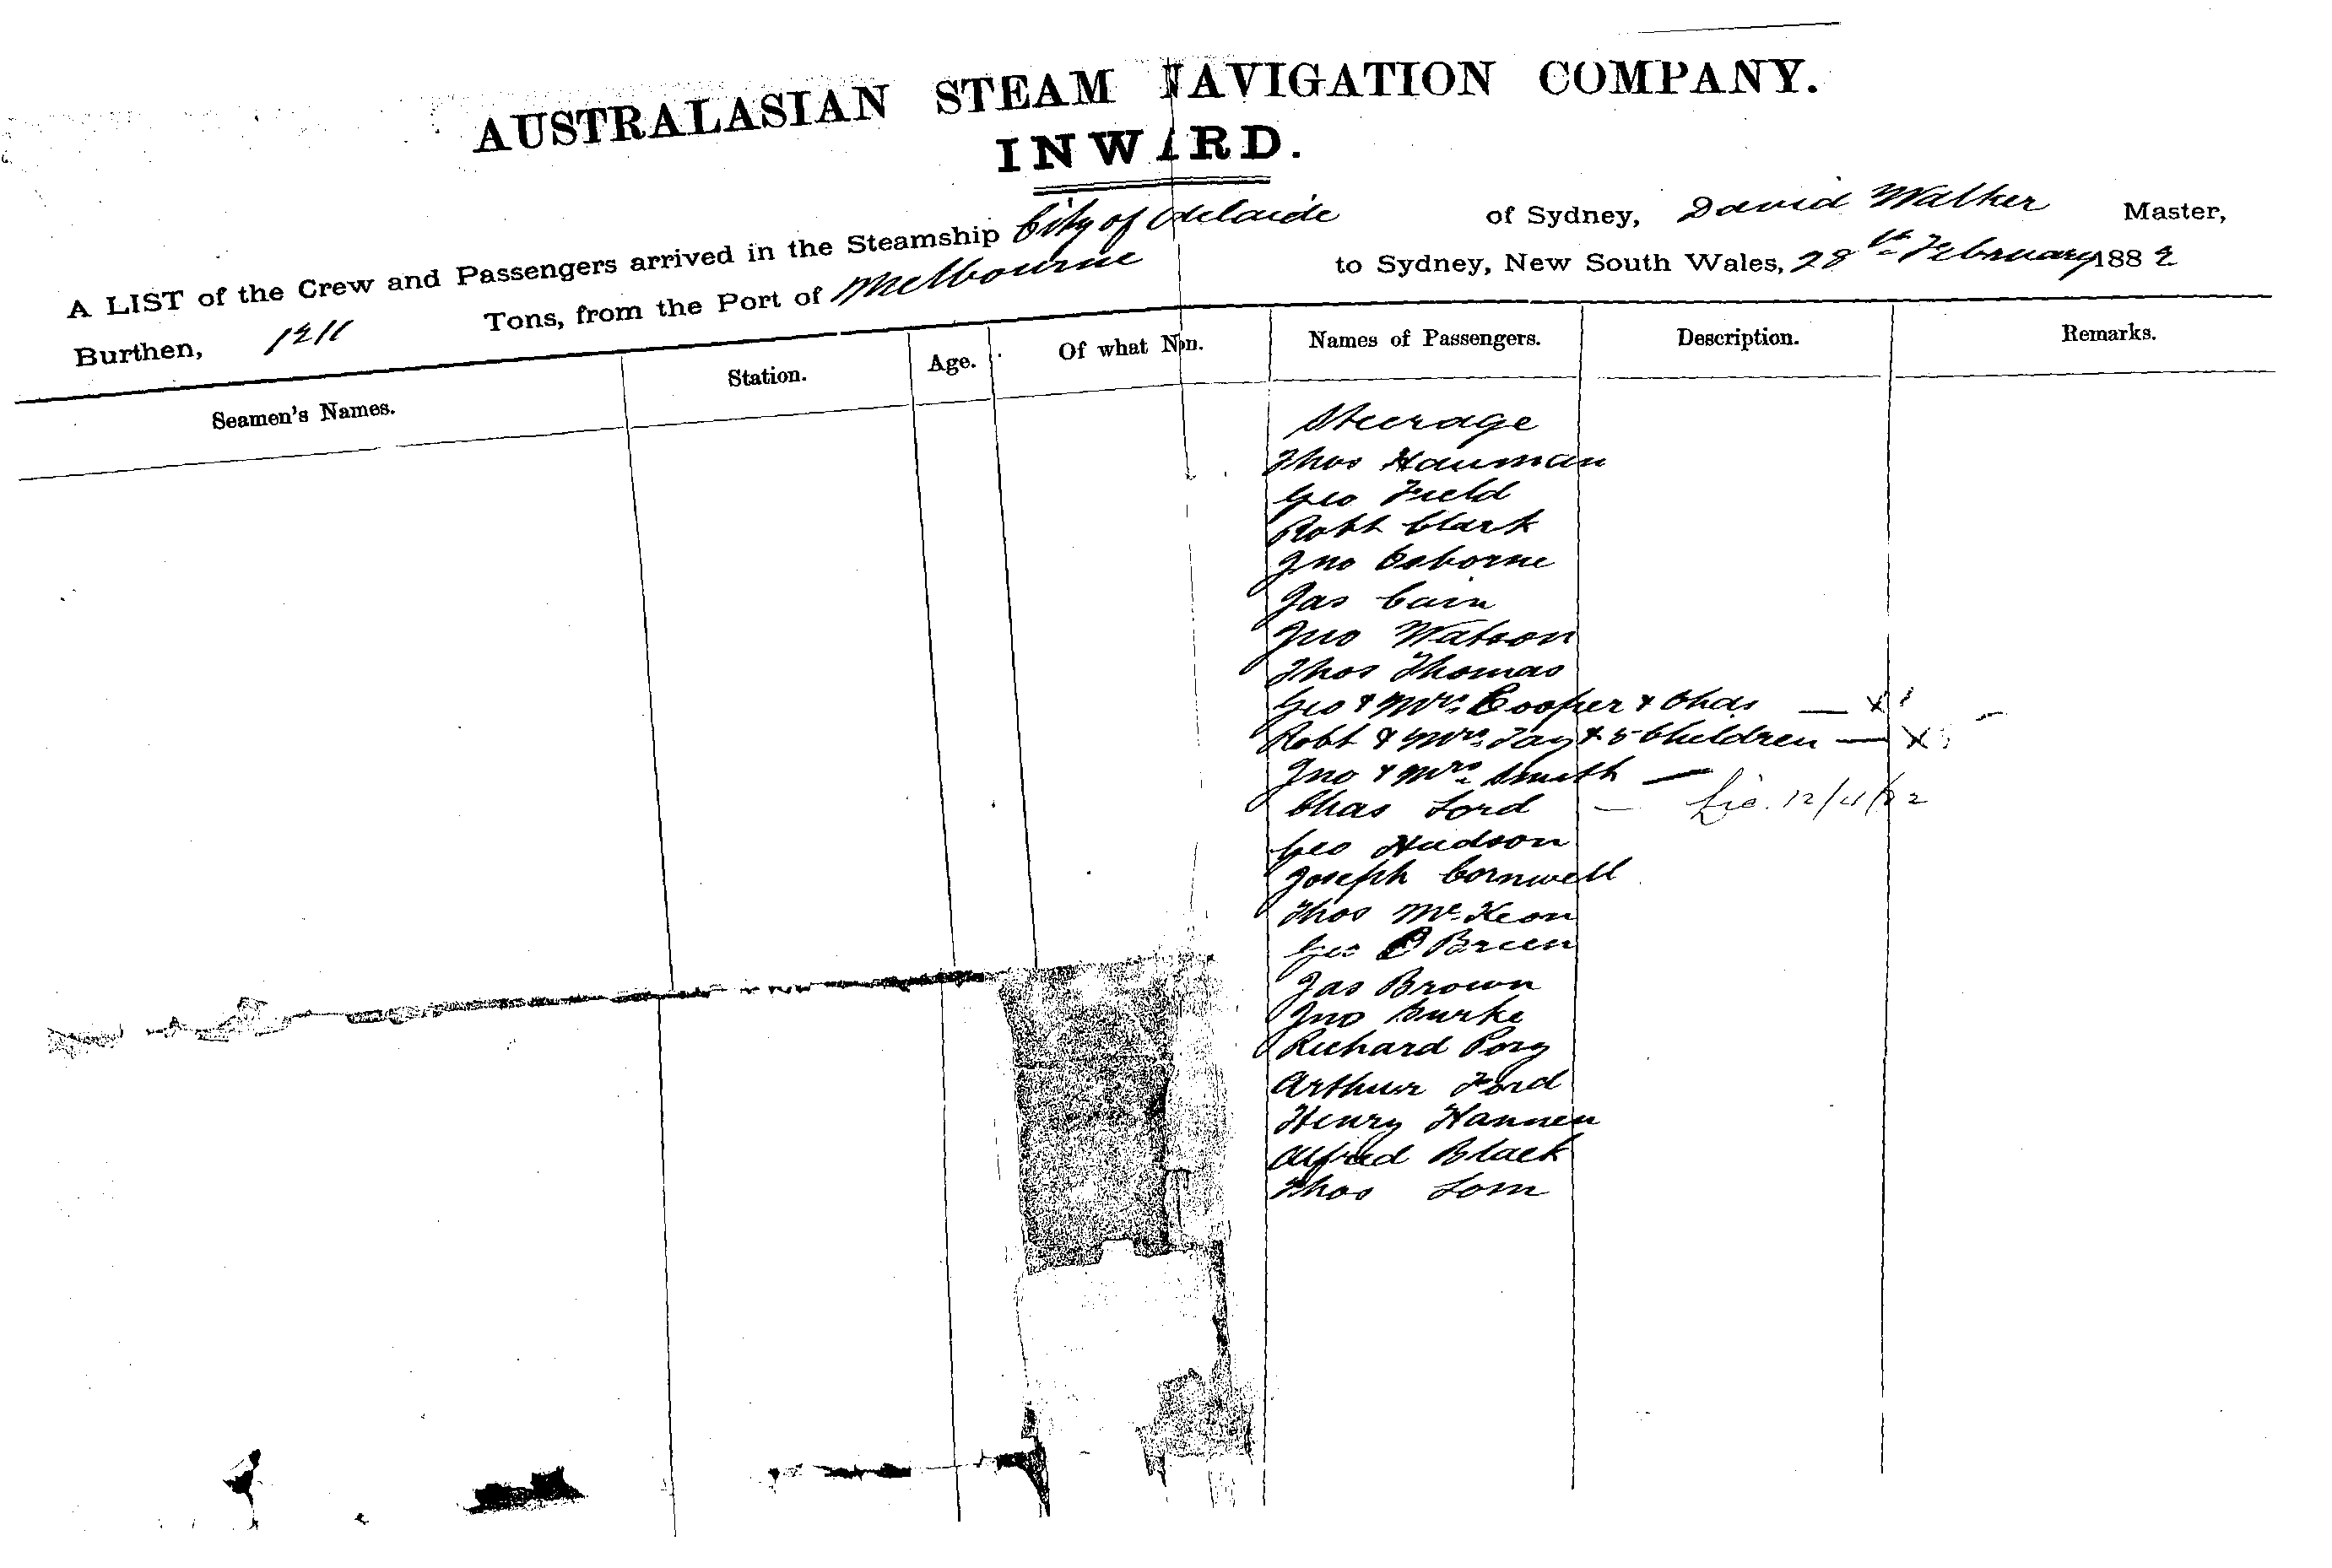 AUSTRALASIAN STEAM NAVIGATION COMPANY.
INWARD.
A LIST of the Crew and Passengers arrived in the Steamship City of Adelaide of Sydney, David Walker Master,
Burthen, 1211 Tons, from the Port of Melbourne to Sydney, New South Wales, 28th February 1882
Seamen's Names. Station. Age. Of what Nn. Names of Passengers. Description. Remarks.
Steerage
Thos Hauman
Geo Field
Robt Clark
Jno Osborne
Jas Cain
Jno Watson
Thos Thomas
Geo & Mrs Cooper & Chas — X
Robt & Mrs Tay & 5 Children — X
Jno & Mrs Smith —
Chas Lord —
Geo Hudson
Joseph Cornwell
Thos McKeon
Geo O Brien
Jas Brown
Jno Burke
Richard
Arthur Ford
Henry Hannen
Alfred Black
Thos Lom